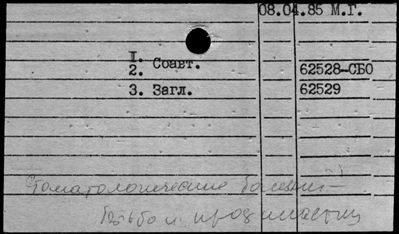 08.04.85 М.Г.
I. Соавт.
2.
62528-СБО
3. Загл.
62529
Стоматологические болезни -
борьба и профилактика